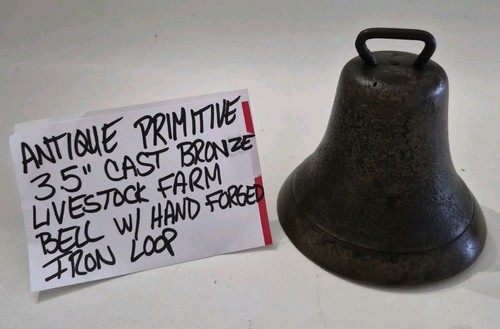 ANTIQUE PRIMITIVE
3.5" CAST BRONZE
LIVESTOCK FARM
BELL W/ HAND FORGED
IRON LOOP